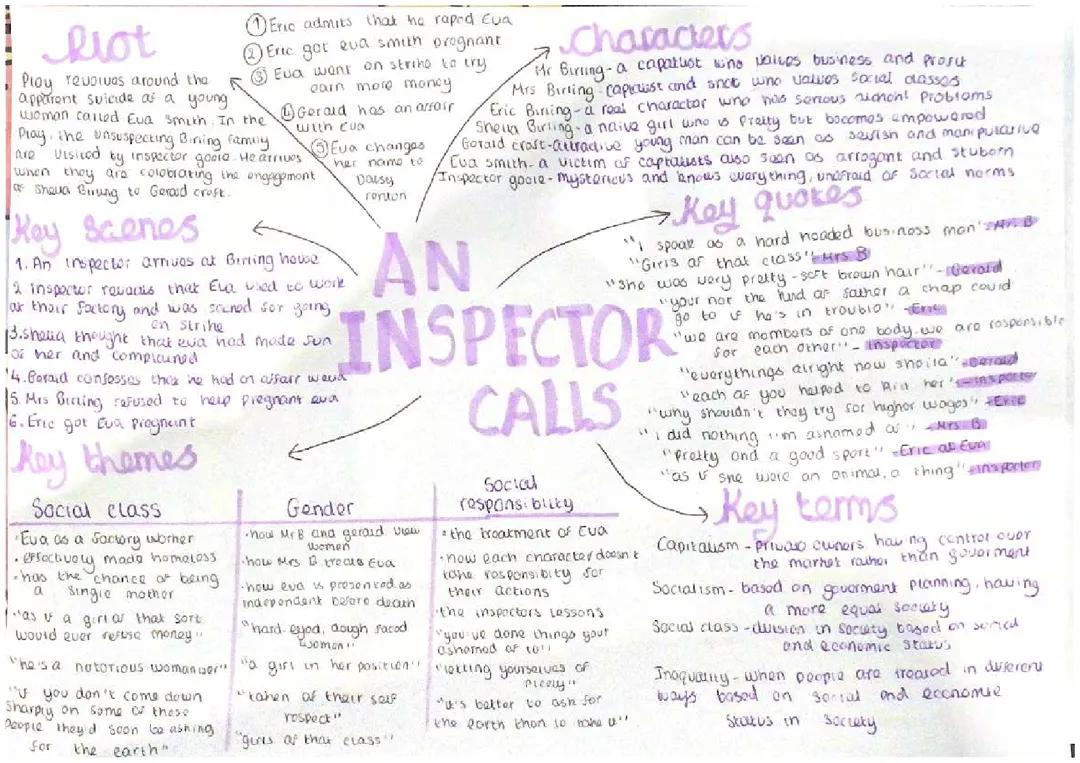 Plot
Play revolves around the
apparent suicide of a young
woman called Eva Smith. In the
Play, the unsuspecting Birling family
are visited by inspector goole. He arrives
when they are celebrating the engagement
of Sheila Birling to Gerald croft.
① Eric admits that he raped Eva
② Eric got eva smith pregnant
③ Eva went on strike to try
earn more money
④ Gerald has an affair
with Eva
⑤ Eva changes
her name to
Daisy
renton
Characters
Mr Birling - a capatlist who values business and profit
Mrs Birling - capitalist and snob who values social classes
Eric Birling - a real character who has serious alchohl problems
Sheila Birling - a naive girl who is pretty but becomes empowered
Gerald croft - attractive young man can be seen as selfish and manipulative
Eva smith - a victim of capitalists also seen as arrogant and stuborn
Inspector goole - mysterious and knows everything, unafraid of social norms
Key scenes
1. An inspector arrives at Birling house
2 inspector reveals that Eva used to work
at their factory and was sacked for going
on strike
3. sheila thought that eva had made fun
of her and complained
4. Gerald confesses that he had an affair w eva
5. Mrs Birling refused to help pregnant eva
6. Eric got Eva pregneint
AN
INSPECTOR
CALLS
Key quotes
"i speak as a hard headed business man" - Mr. B
"Girls of that class" - Mrs B
"she was very pretty - soft brown hair" - Gerald
"your not the kind of father a chap could
go to if he's in trouble" - Eric
"we are members of one body. we are responsible
for each other" - Inspector
"everythings alright now sheila" - Gerald
"each of you helped to kill her" - inspector
"why shouldn't they try for higher wages" - Eric
"i did nothing i'm ashamed of" - Mrs B
"Pretty and a good sport" - Eric ab Eva
"as if she were an animal, a thing" - inspector
Key themes
Social class
• Eva as a factory worker
• effectively made homeless
• has the chance of being
a single mother
"as if a girl of that sort
would ever refuse money"
"he's a notorious womaniser"
"if you don't come down
sharply on some of these
people they'd soon be asking
for the earth"
Gender
• how Mr B and gerald view
women
• how Mrs B treats Eva
• how eva is presented as
independent before death
"hard-eyed, dough faced
women"
"a girl in her position"
"taken of their self
respect"
"girls of that class"
Social
responsibility
• the treatment of Eva
• how each character doesn't
take responsibility for
their actions
• the inspectors lessons
"you've done things your
ashamed of to"
"letting yourselves of
nicely"
"it's better to ask for
the earth than to take it"
Key terms
Capitalism - private owners having control over
the market rather than goverment
Socialism - based on goverment planning, having
a more equal society
Social class - division in society based on social
and economic status
Inequality - when people are treated in different
ways based on social and economic
status in society